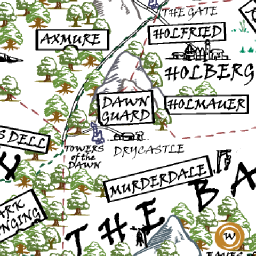 THE GATE
AXMURE
HOLFRIED
HOLBERG
DAWN
GUARD
HOLMAUER
S DELL
TOWERS
of the
DAWN
DRYCASTLE
MURDERDALE
ARK
INGING
THE BA
W
EAVES